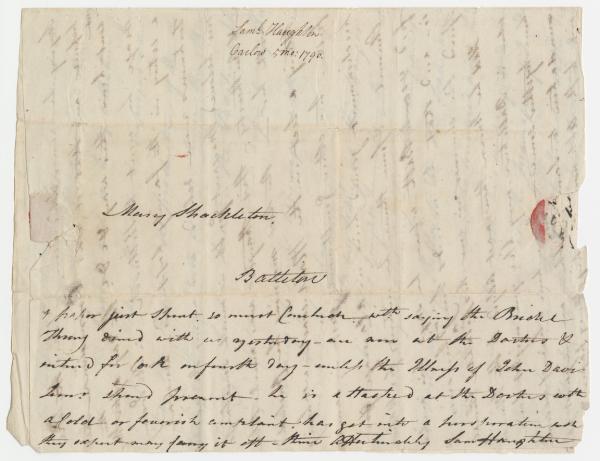 Saml. Haughton
Carlow 5 mo: 1790.
Mary Shackleton.
Balleton
& paper just spent, so must Conclude wth. saying the Bridel
throng dined with us yesterday - are now at the Doctors &
intend for Cork on fourth day - unless the Illness of John Davi
should prevent. he is attacked at the Doctors with
a Cold or feverish complaint has got into a perspiration wch
they expect may carry it off - thine Affectionately Saml Haughton